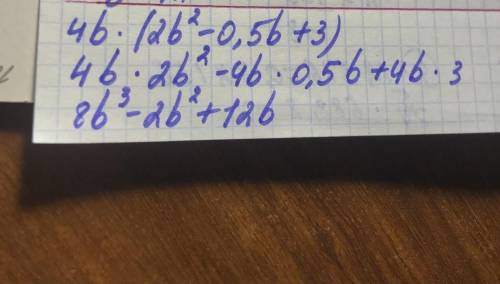 4b · (2b² - 0,5b + 3)
4b · 2b² - 4b · 0,5b + 4b · 3
8b³ - 2b² + 12b